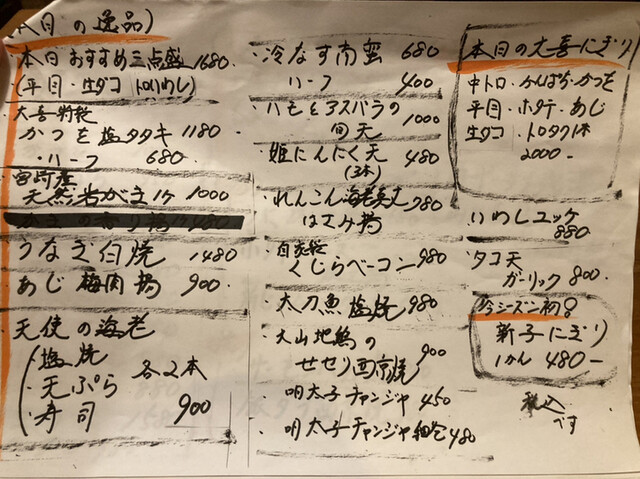 本日の逸品)
・本日おすすめ三点盛 1680
(平目・生ダコ トロいわし)
・大喜特製
かつを塩タタキ 1180
・ハーフ 680
・宮崎産
天然岩がき1ケ 1000
うなぎ白焼 1480
あじ梅肉揚 900
・天使の海老
・塩焼
・天ぷら 各2本
・寿司 900
・冷なす南蛮 680
ハーフ 400
・ハモとアスパラの
旬天 1000
・姫にんにく天 480
(3本)
・れんこん海老真丈
はさみ揚 980
・自家製
くじらベーコン 980
・太刀魚塩焼 980
・大山地鶏の
せせり西京焼 900
・明太子チャンジャ 450
・明太子チャンジャ 480
本日の大喜にぎり
中トロ・かんぱち・かつを
平目・ホタテ・あじ
生ダコ トロタク1本
2000-
・いわしユッケ
880
・タコ天
ガーリック 800
今シーズン初!
新子にぎり
1かん 480-
税込
です